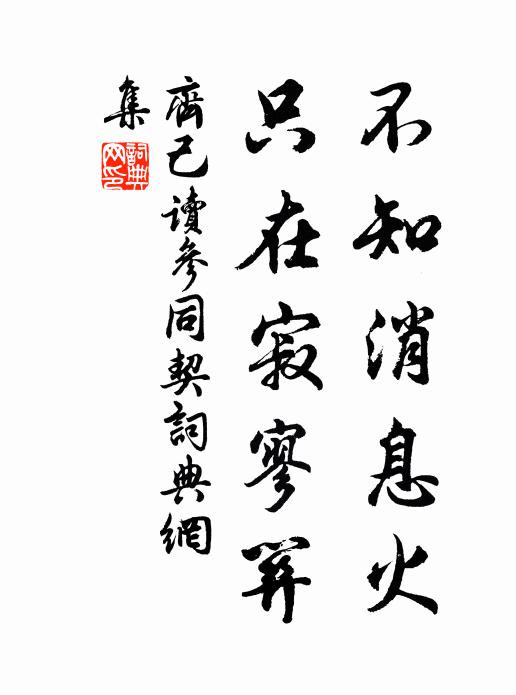 不知消息火
只在寂寥關
齊己讀參同契詞典網
集
詞典
网印